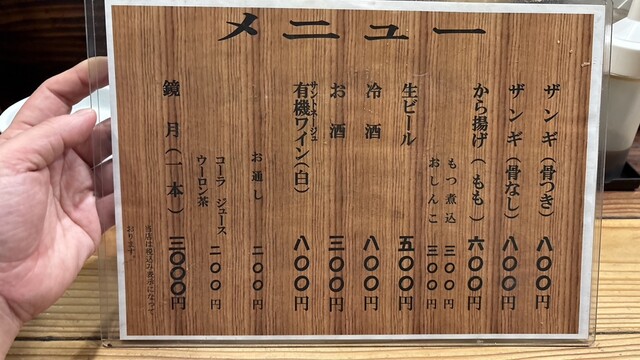 メニュー
ザンギ(骨つき)八〇〇円
ザンギ(骨なし)八〇〇円
から揚げ(もも)六〇〇円
もつ煮込 三〇〇円
おしんこ 三〇〇円
生ビール 五〇〇円
冷酒 八〇〇円
お酒 三〇〇円
サントネージュ
有機ワイン(白)八〇〇円
お通し 二〇〇円
コーラ ジュース
ウーロン茶 二〇〇円
鏡月(一本)三〇〇〇円
当店は税込み表示になって
おります。